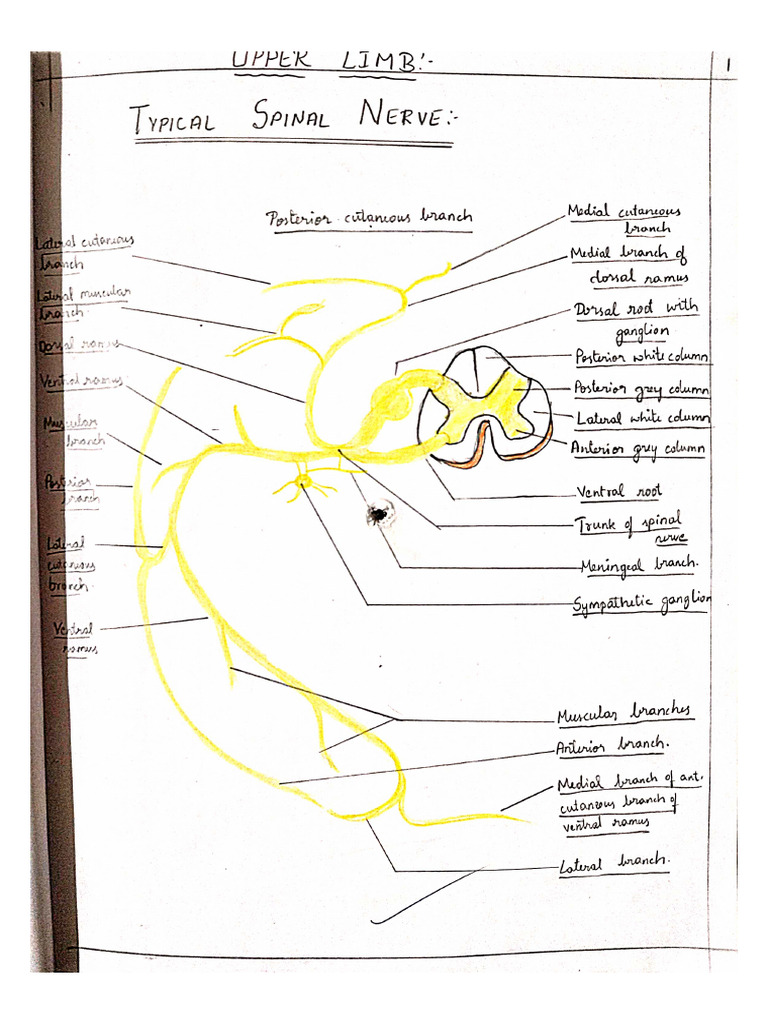 UPPER LIMB:-
1
TYPICAL SPINAL NERVE:-
Posterior cutaneous branch
Lateral cutaneous
branch
Lateral muscular
branch
Dorsal ramus
Ventral ramus
Muscular
branch
Posterior
branch
Lateral
cutaneous
branch.
Ventral
ramus
Medial cutaneous
branch
Medial branch of
dorsal ramus
Dorsal root with
ganglion
Posterior white column
Posterior grey column
Lateral white column
Anterior grey column
Ventral root
Trunk of spinal
nerve
Meningeal branch.
Sympathetic ganglion
Muscular branches
Anterior branch.
Medial branch of ant.
cutaneous branch of
ventral ramus
Lateral branch.